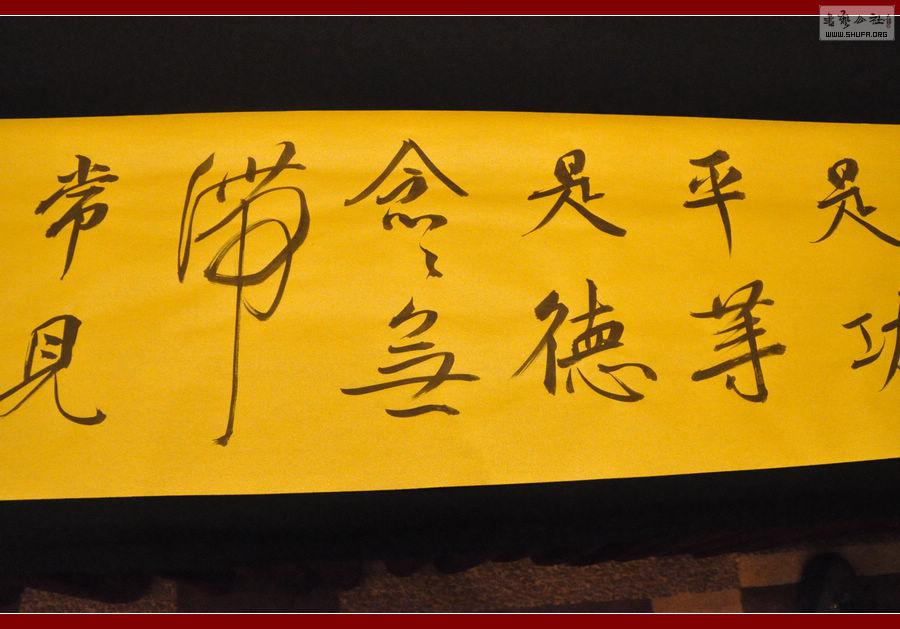 書藝公社
WWW.SHUFA.ORG
是功
平等
是德
念々無
滯
常見